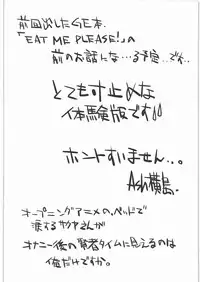 前回出したG日本.
「EAT ME PLEASE!」の
前のお話にな…る予定..です..
とても寸止めな
体験版です!!
ホントすいません...。
Ash横島.
オープニングアニメの、ベッドで
涙するサクヤさんが
オナニー後の賢者タイムに見えるのは
俺だけですか。